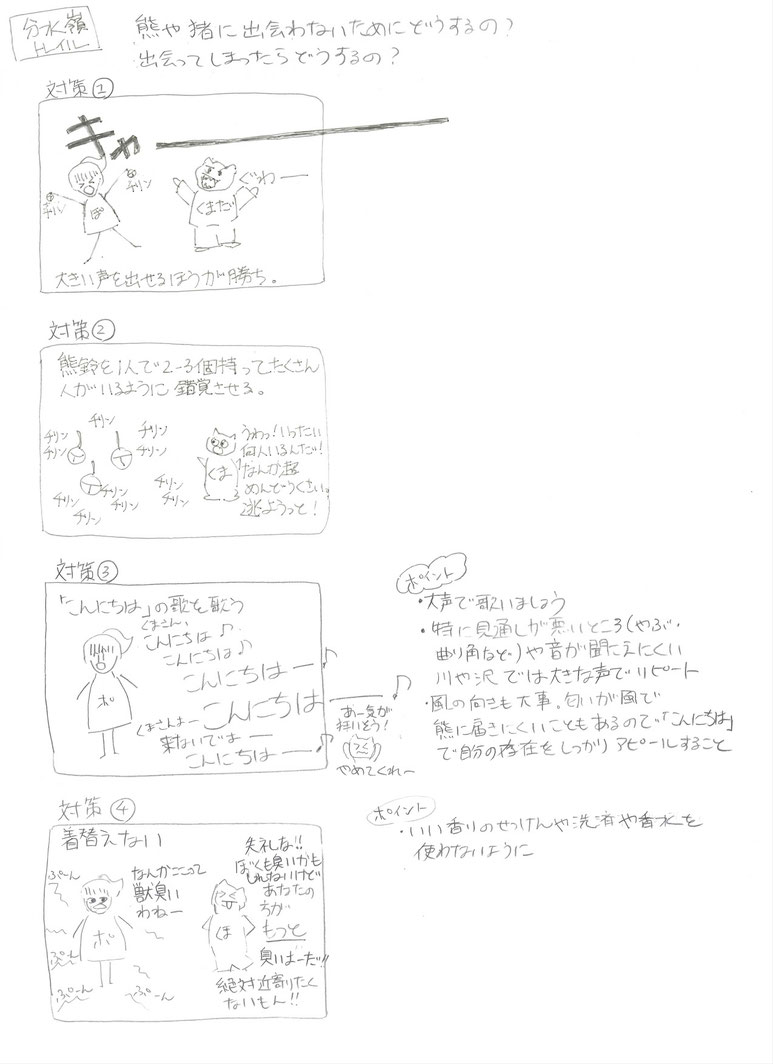 分水嶺
トレイル
熊や猪に出会わないためにどうするの?
出会ってしまったらどうするの?
対策①
キャーーー
チリン
チリン
ぽ
くまだ
ぐわー
大きい声を出せるほうが勝ち。
対策②
熊鈴を1人で2-3個持ってたくさん
人がいるように錯覚させる。
チリン
チリン
チリン
チリン
チリン
チリン
チリン
チリン
チリン
チリン
くま
うわっ!いったい
何人いるんだ!
なんか超
めんどうくさい。
逃ようっと!
対策③
「こんにちは」の歌を歌う
くまさん、
こんにちは♪
こんにちは♪
こんにちはー♪
こんにちはー♪
くまさんよー
来ないでねー
こんにちはー♪
ポ
あー気が
狂いそう!
やめてくれ~
ポイント
・大声で歌いましょう
・特に見通しが悪いところ(やぶ、
曲り角など)や音が聞こえにくい
川や沢では大きな声でリピート
・風の向きも大事。匂いが風で
熊に届きにくいこともあるので「こんにちは」
で自分の存在をしっかりアピールすること
対策④
着替えない
ぷーん
ぷーん
ぷーん
ぷーん
なんかここって
獣臭い
わねー
ポ
失礼な!!
ぼくも臭いかも
しれないけど
あなたの
ちが
もっと
臭いよーだ!!
ほ
絶対近寄りたく
ないもん!!
ポイント
・いい香りのせっけんや洗済や香水を
使わないように